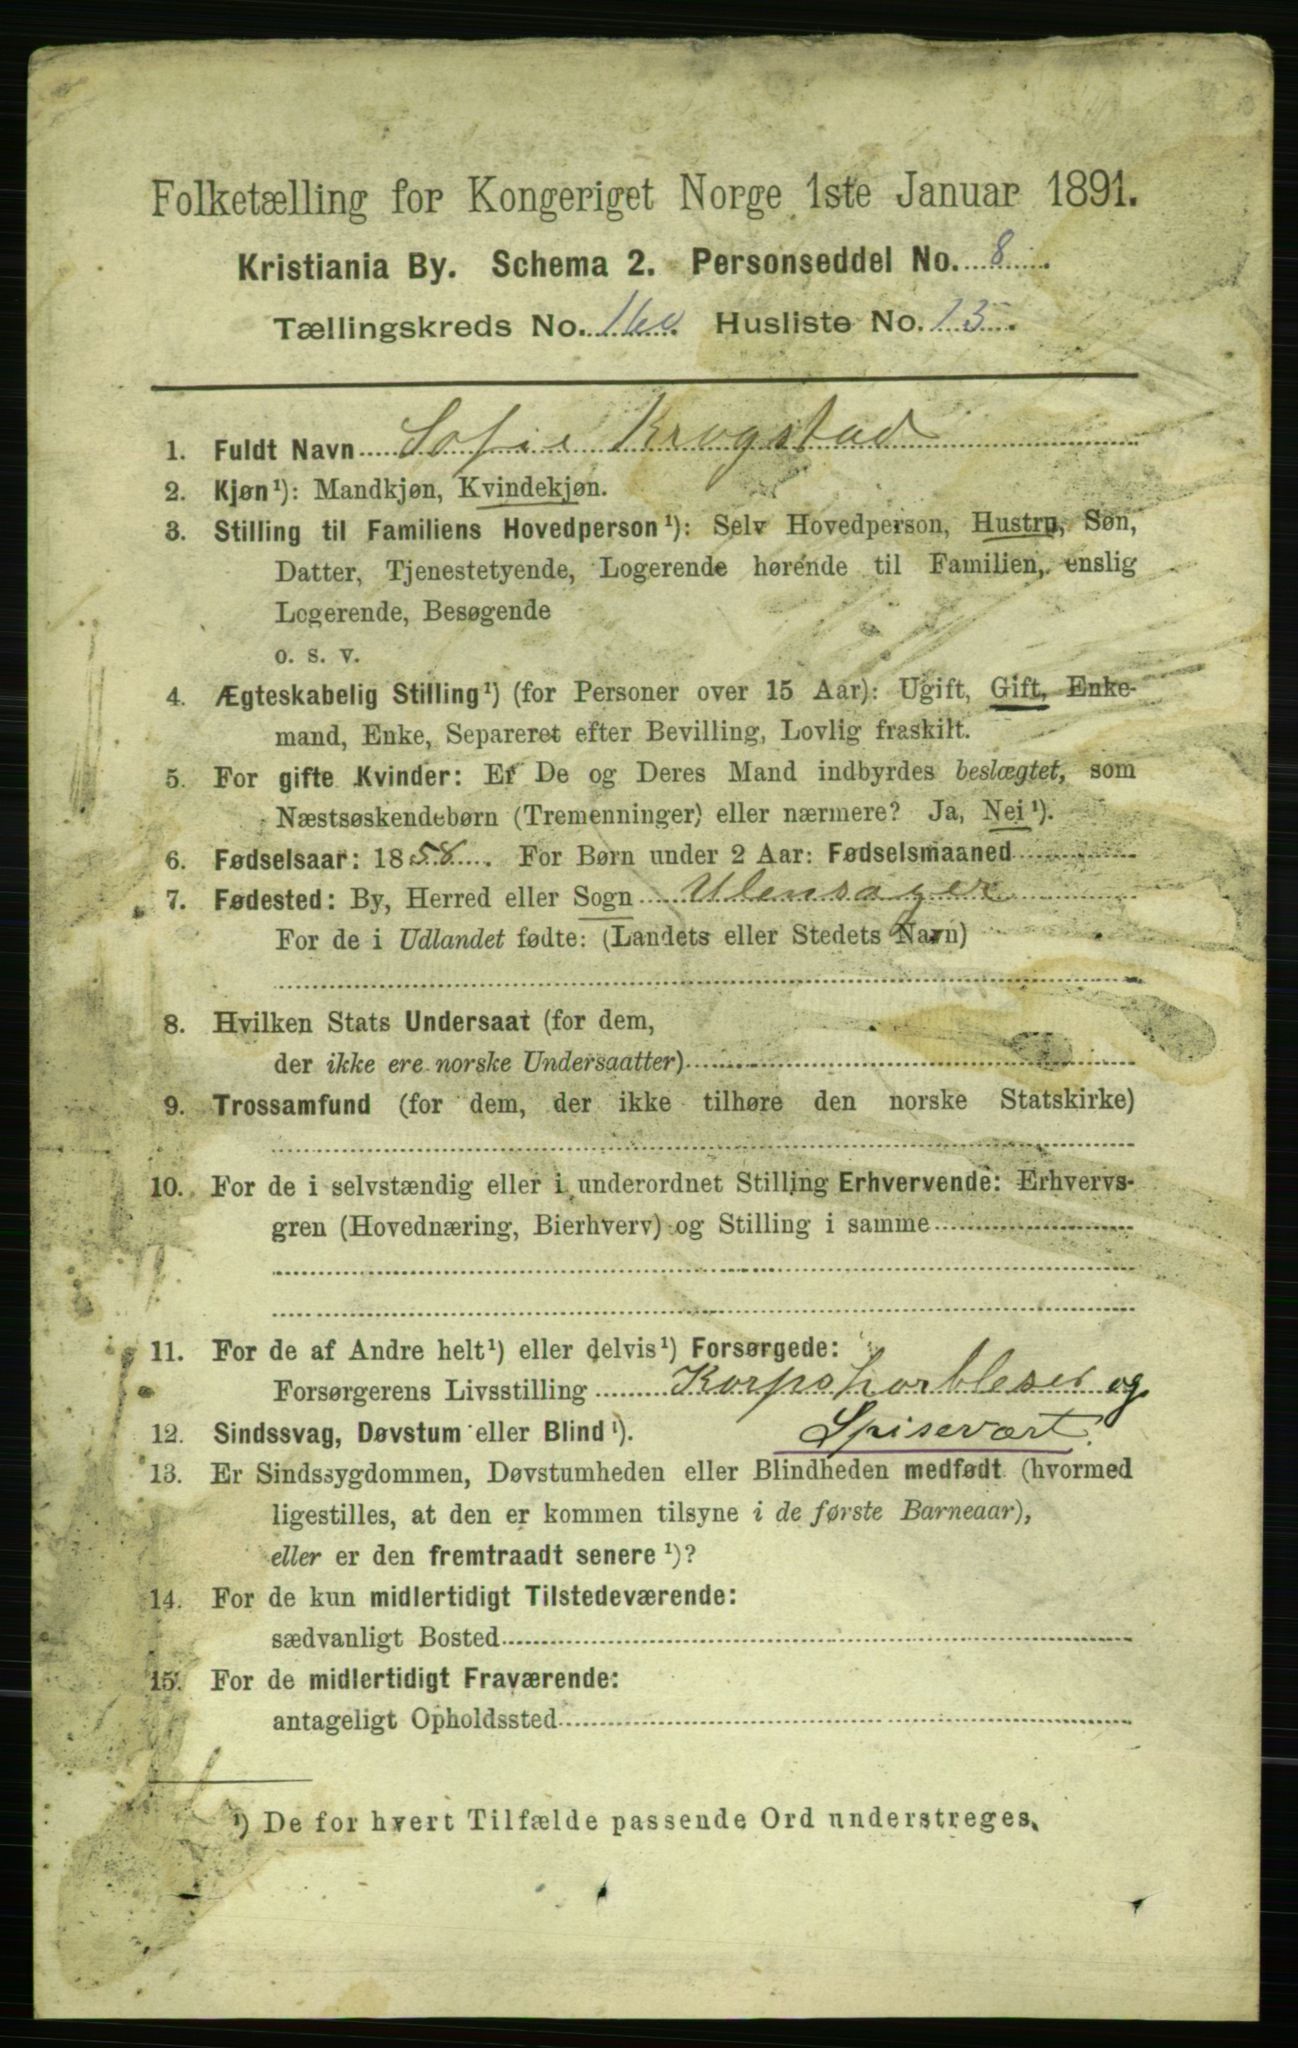 Folketælling for Kongeriget Norge 1ste Januar 1891.
Kristiania By. Schema 2. Personseddel No. 8.
Tællingskreds No. 160. Husliste No. 13.
1. Fuldt Navn Sofie Krogstad
2. Kjøn¹): Mandkjøn, Kvindekjøn.
3. Stilling til Familiens Hovedperson¹): Selv Hovedperson, Hustru, Søn,
Datter, Tjenestetyende, Logerende hørende til Familien, enslig
Logerende, Besøgende
o. s. v.
4. Ægteskabelig Stilling¹) (for Personer over 15 Aar): Ugift, Gift, Enke-
mand, Enke, Separeret efter Bevilling, Lovlig fraskilt.
5. For gifte Kvinder: Er De og Deres Mand indbyrdes beslægtet, som
Næstsøskendebørn (Tremenninger) eller nærmere? Ja, Nei¹).
6. Fødselsaar: 1858. For Børn under 2 Aar: Fødselsmaaned
7. Fødested: By, Herred eller Sogn Ulensager
For de i Udlandet fødte: (Landets eller Stedets Navn)
8. Hvilken Stats Undersaat (for dem,
der ikke ere norske Undersaatter)
9. Trossamfund (for dem, der ikke tilhøre den norske Statskirke)
10. For de i selvstændig eller i underordnet Stilling Erhvervende: Erhvervs-
gren (Hovednæring, Bierhverv) og Stilling i samme
11. For de af Andre helt¹) eller delvis¹) Forsørgede:
Forsørgerens Livsstilling Korpshornblæser og
12. Sindssvag, Døvstum eller Blind¹). Spisevært.
13. Er Sindssygdommen, Døvstumheden eller Blindheden medfødt (hvormed
ligestilles, at den er kommen tilsyne i de første Barneaar),
eller er den fremtraadt senere¹)?
14. For de kun midlertidigt Tilstedeværende:
sædvanligt Bosted
15. For de midlertidigt Fraværende:
antageligt Opholdssted
¹) De for hvert Tilfælde passende Ord understreges.